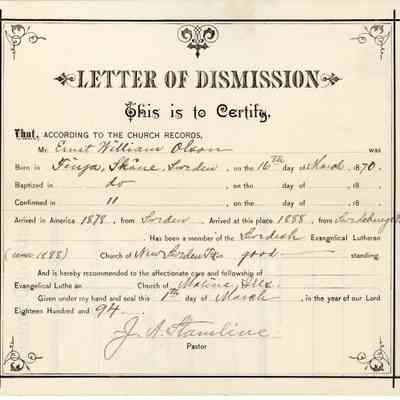 LETTER OF DISMISSION
This is to Certify,
That, ACCORDING TO THE CHURCH RECORDS,
Mr Ernst William Olson was
Born in Finja, Skåne, Sweden, on the 16th day of March 1870.
Baptized in do , on the day of , 18 .
Confirmed in " , on the day of , 18 .
Arrived in America 1878, from Sweden. Arrived at this place 1888, from
Has been a member of the Swedish Evangelical Lutheran
(since 1888) Church of New Sweden good standing.
And is hereby recommended to the affectionate care and fellowship of
Evangelical Lutheran Church of Moline, Ills.
Given under my hand and seal this 1th day of March , in the year of our Lord
Eighteen Hundred and 94
J. A. Stamline
Pastor